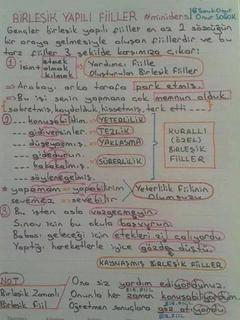 BİRLEŞİK YAPILI FİİLLER #miniders
Onur SOBUK
Gençler birleşik yapılı fiiller en az 2 sözcüğün
bir araya gelmesiyle oluşan fiillerdir ve bu
tarz fiiller 3 şekilde karşımıza çıkar:
① isim + etmek olmak kılmak → Yardımcı Fiille Oluşturulan Birleşik Fiiller
→ Arabayı arka tarafa park etmiş.
→ Bu işi senin yapmana çok memnun olduk
sabretmiş, kaydolduk, hissetmiş, terk etti
② --- konuşabildim. → YETERLİLİK
--- gidiversinler. → TEZLİK
--- düşeyazmış. → YAKLAŞMA
--- gidedurun.
--- bakakalmış. → SÜRERLİLİK
--- söylenegelmiş.
KURALLI (ÖZEL) BİRLEŞİK FİİLLER
* yapamam → yapabilirim
sevemez → sevebilir
Yeterlilik Fiilinin Olumsuzu
③ Bu işten asla vazgeçmeyin.
Sınav için bu okula başvurun.
Babası geleceği için etekleri zil çalıyordu
Yaptığı hareketlerle iyice gözden düştü.
KAYNAŞMIŞ BİRLEŞİK FİİLLER
NOT
Birleşik Zamanlı
Birleşik Fiil
Ona siz yardım ediyordunuz.
Onunla her zaman konuşabiliyordum
Öğretmen sonuçlara göz atıyordu